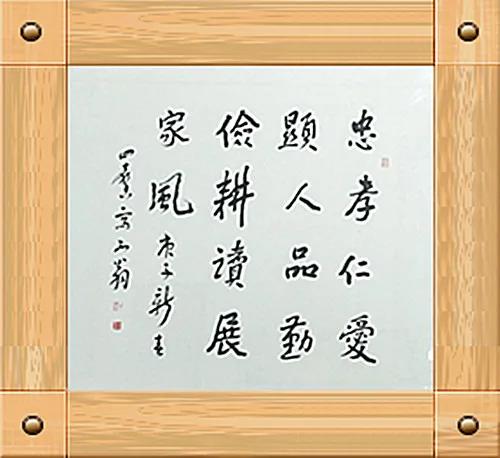 忠孝仁愛
顯人品勤
儉耕讀展
家風庚子新春